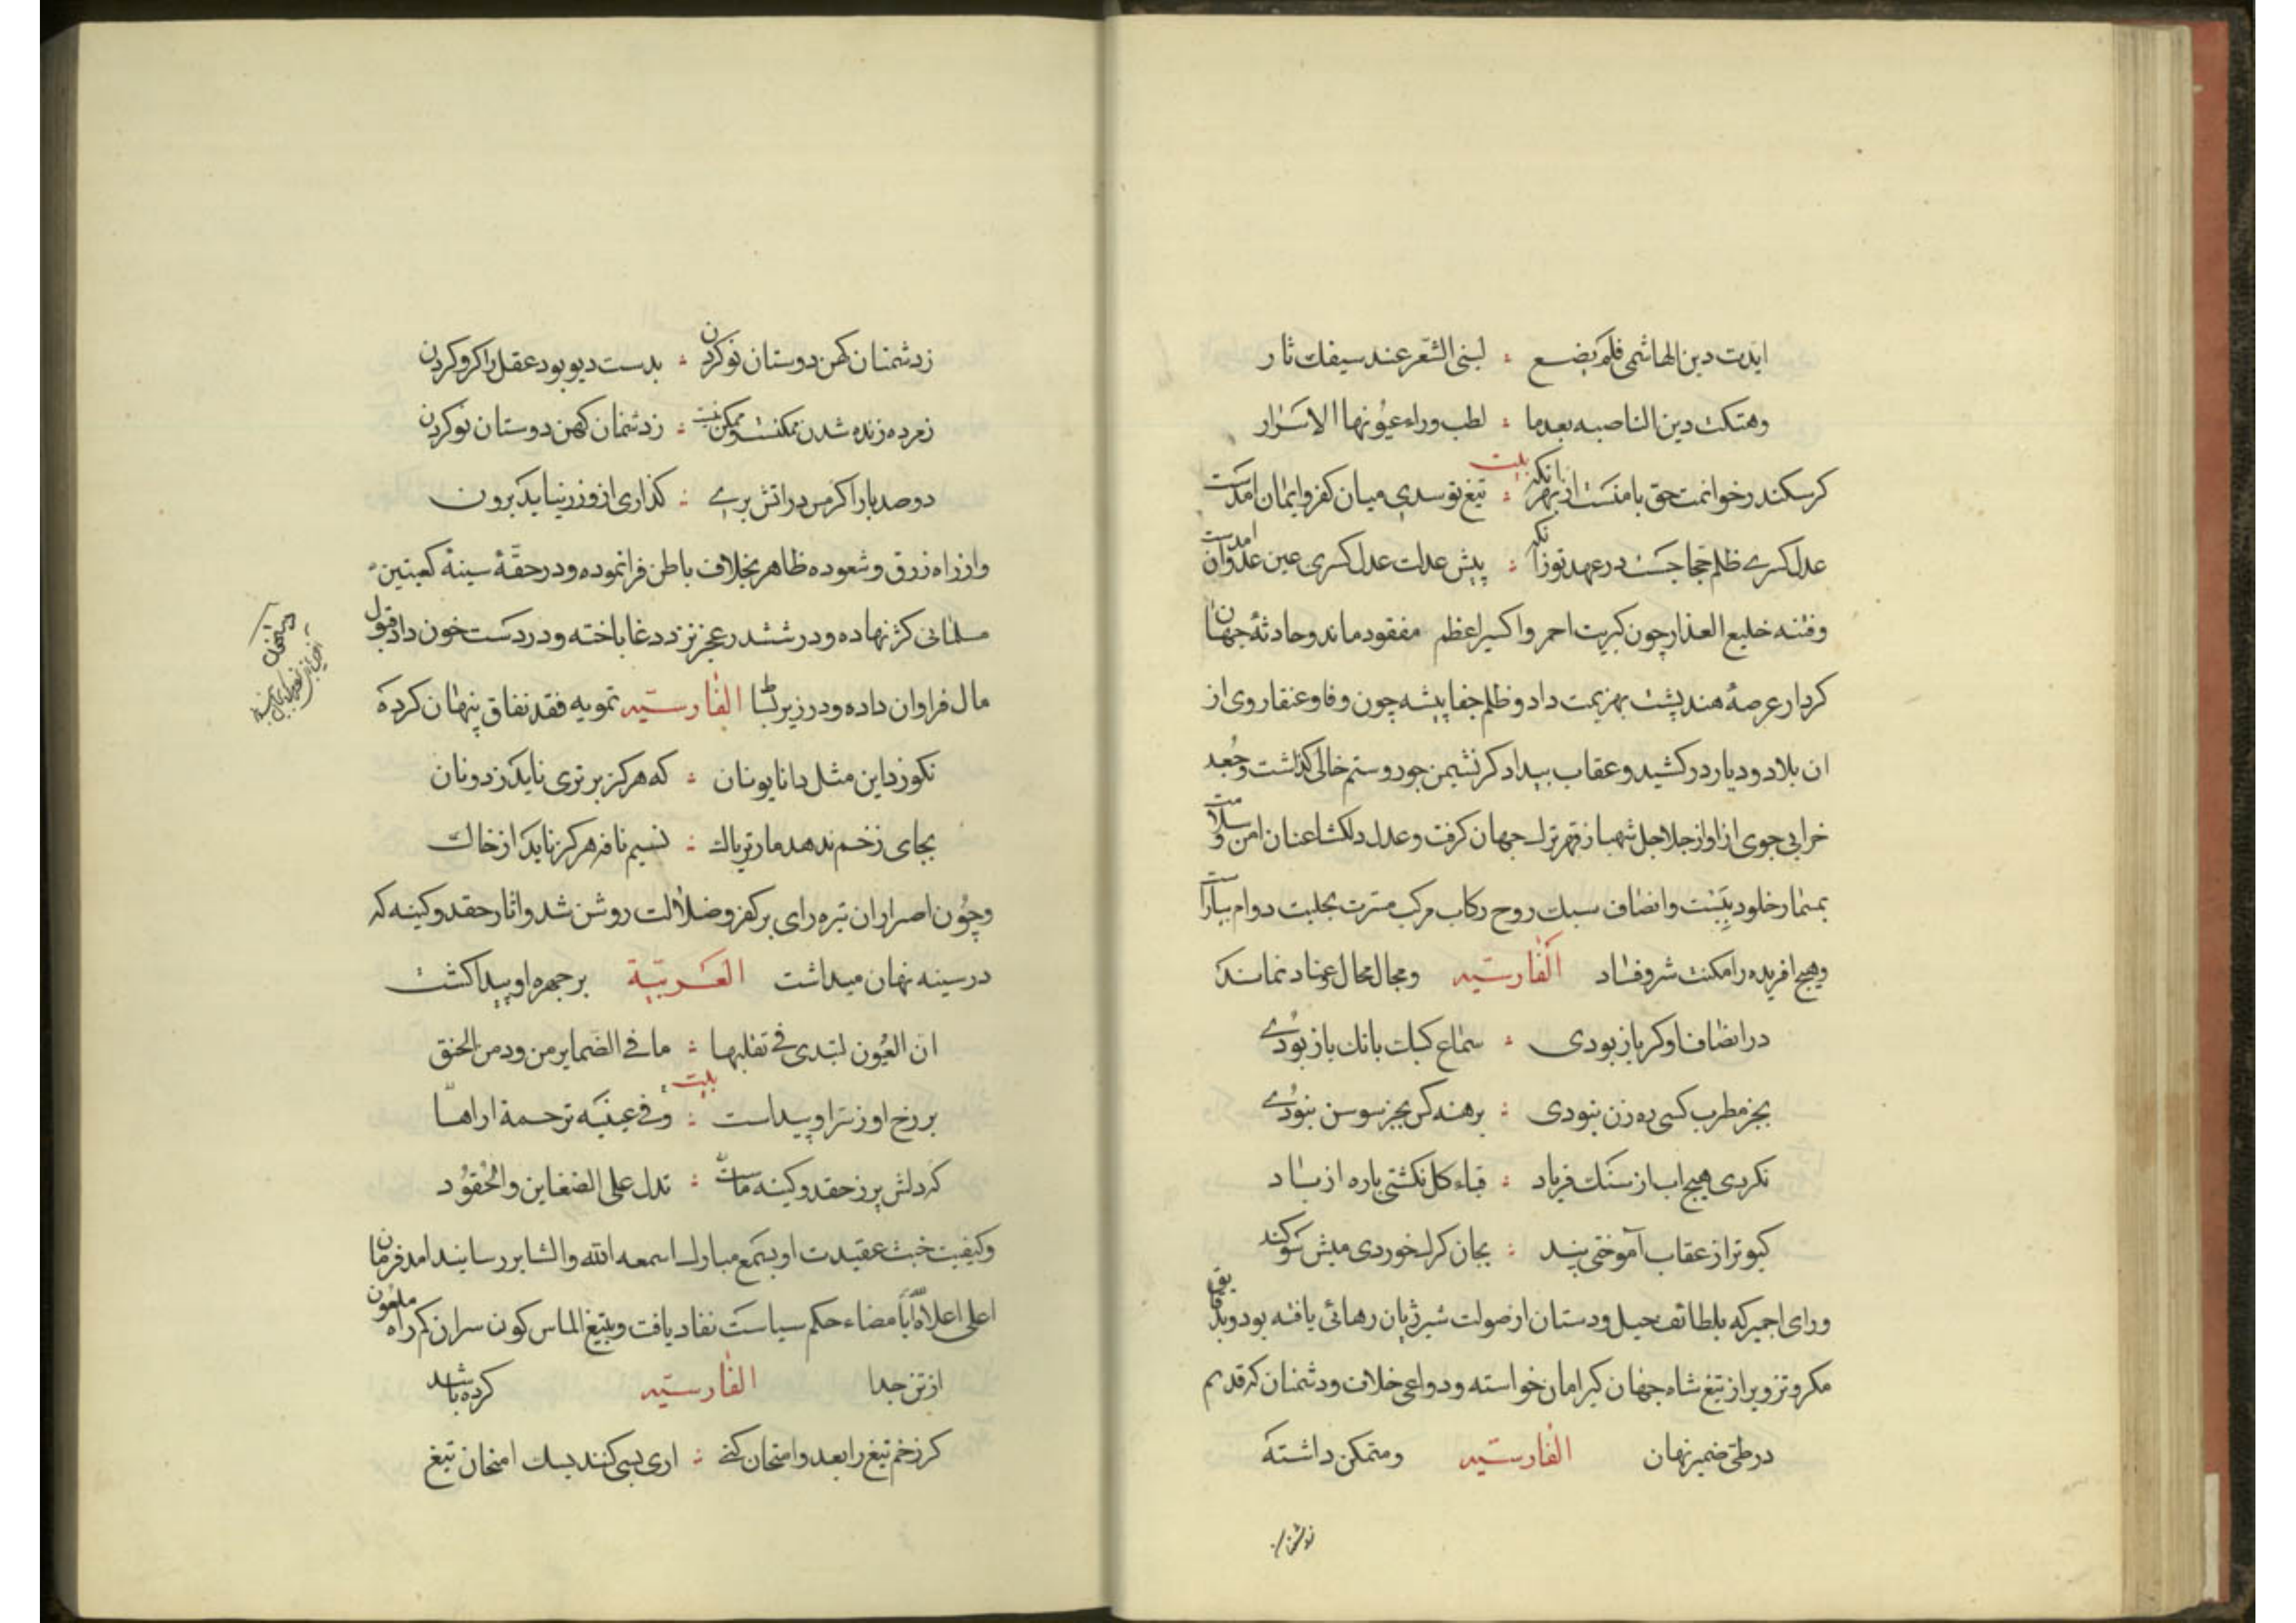 ایدت دین الهاشمی فلم یضع : لبنی الشر عند سیفك ثار
وهتکت دین الناصبه بعد ما : لطب وراء عیونها الاسرار
بیت
کر سکندر خوانمت حق بامنست از بهر انکه : تیغ تو سدی میان کفر و ایمان امدست
عدل کسری ظلم حجاجست در عهد تو زانکه : پیش عدلت عدل کسری عین عدوان امدست
وفتنه خلیع العذار چون کبریت احمر واکسیر اعظم مفقود ماند وحادثهٔ جهان
کردار عرصهٔ هند پشت بهزیمت داد وظلم جفا پیشه چون وفا وعنقا روی از
ان بلاد ودیار درکشید وعقاب بیدادکر نشیمن جور وستم خالی کذاشت وجغد
خرابی جوی از اواز جلاجل شهباز قهر ترك جهان کرفت وعدل دلکشا عنان امن و سلامت
بمسمار خلود ببست وانصاف سبك روح رکاب مرکب مسرت بحلیت دوام بیاراست
وهیچ افریده را مکنت شر وفساد الفارسیه ومجال محال وعناد نماند
در انصاف او کر باز بودی : سماع کبك بانك باز بودے
بجز مطرب کسی ره زن نبودی : برهنه کس بجز سوسن نبودے
نکردی هیچ اب از سنك فریاد : قباء کل نکشتی پاره از باد
کبوتر از عقاب آموختی پند : بجان کرك خوردی میش سوکند
ورای اجمیر که بلطائف حیل ودستان از صولت شیر ژیان رهائی یافته بود وبدقایق
مکر وتزویر از تیغ شاه جهان کیر امان خواسته ودواعی خلاف ودشمنان که قدیم
در طی ضمیر نهان الفارسیه ومتمکن داشته
زدشمنان
زدشمنان کهن دوستان نو کردن : بدست دیو بود عقل را کرو کردن
زمرده زنده شدن ممکنست وممکن نیست : زدشمنان کهن دوستان نو کردن
دو صد بار اکر مس در اتش برے : کذاری ازو زر نیاید برون
واز راه زرق وشعوده ظاهر بخلاف باطن فرا نموده ودر حقهٔ سینهٔ کعبتین
مسلمانی کژ نهاده ودر ششدر عجز نرد دغا باخته ودر دست خون داد قبول
مال فراوان داده ودر زیر لبا الفارسیه تمویه فقد نفاق پنهان کرده
نکو زد این مثل دانا یونان : که هرکز برتری ناید ز دونان
بجای زخم ندهد مار تریاك : نسیم نافه هرکز ناید از خاك
وچون اصرار ان تیره رای بر کفر وضلالت روشن شد واثار حقد وکینه که
در سینه نهان میداشت العربیة بر چهره او پیدا کشت
ان العیون لتبدی فی تقلبها : ما فی الضمایر من ود من الحنق
بیت
بر رخ او ز سر او پیداست : وفی عینیه ترجمة اراها
که دلش پر ز حقد وکینه ماست : تدل علی الضغاین والحقود
وکیفیت خبث عقیدت او بسمع مبارك اسمعه الله والبشایر رسانیدند امد فرمان
اعلی اعلاه الله بامضاء حکم سیاست نفاد یافت وبتیغ الماس کون سر ان کم راه ملعون
از تن جدا الفارسیه کرده باشد
کر زخم تیغ را بعدو امتحان کنی : اری بسی کنند بسك امتحان تیغ